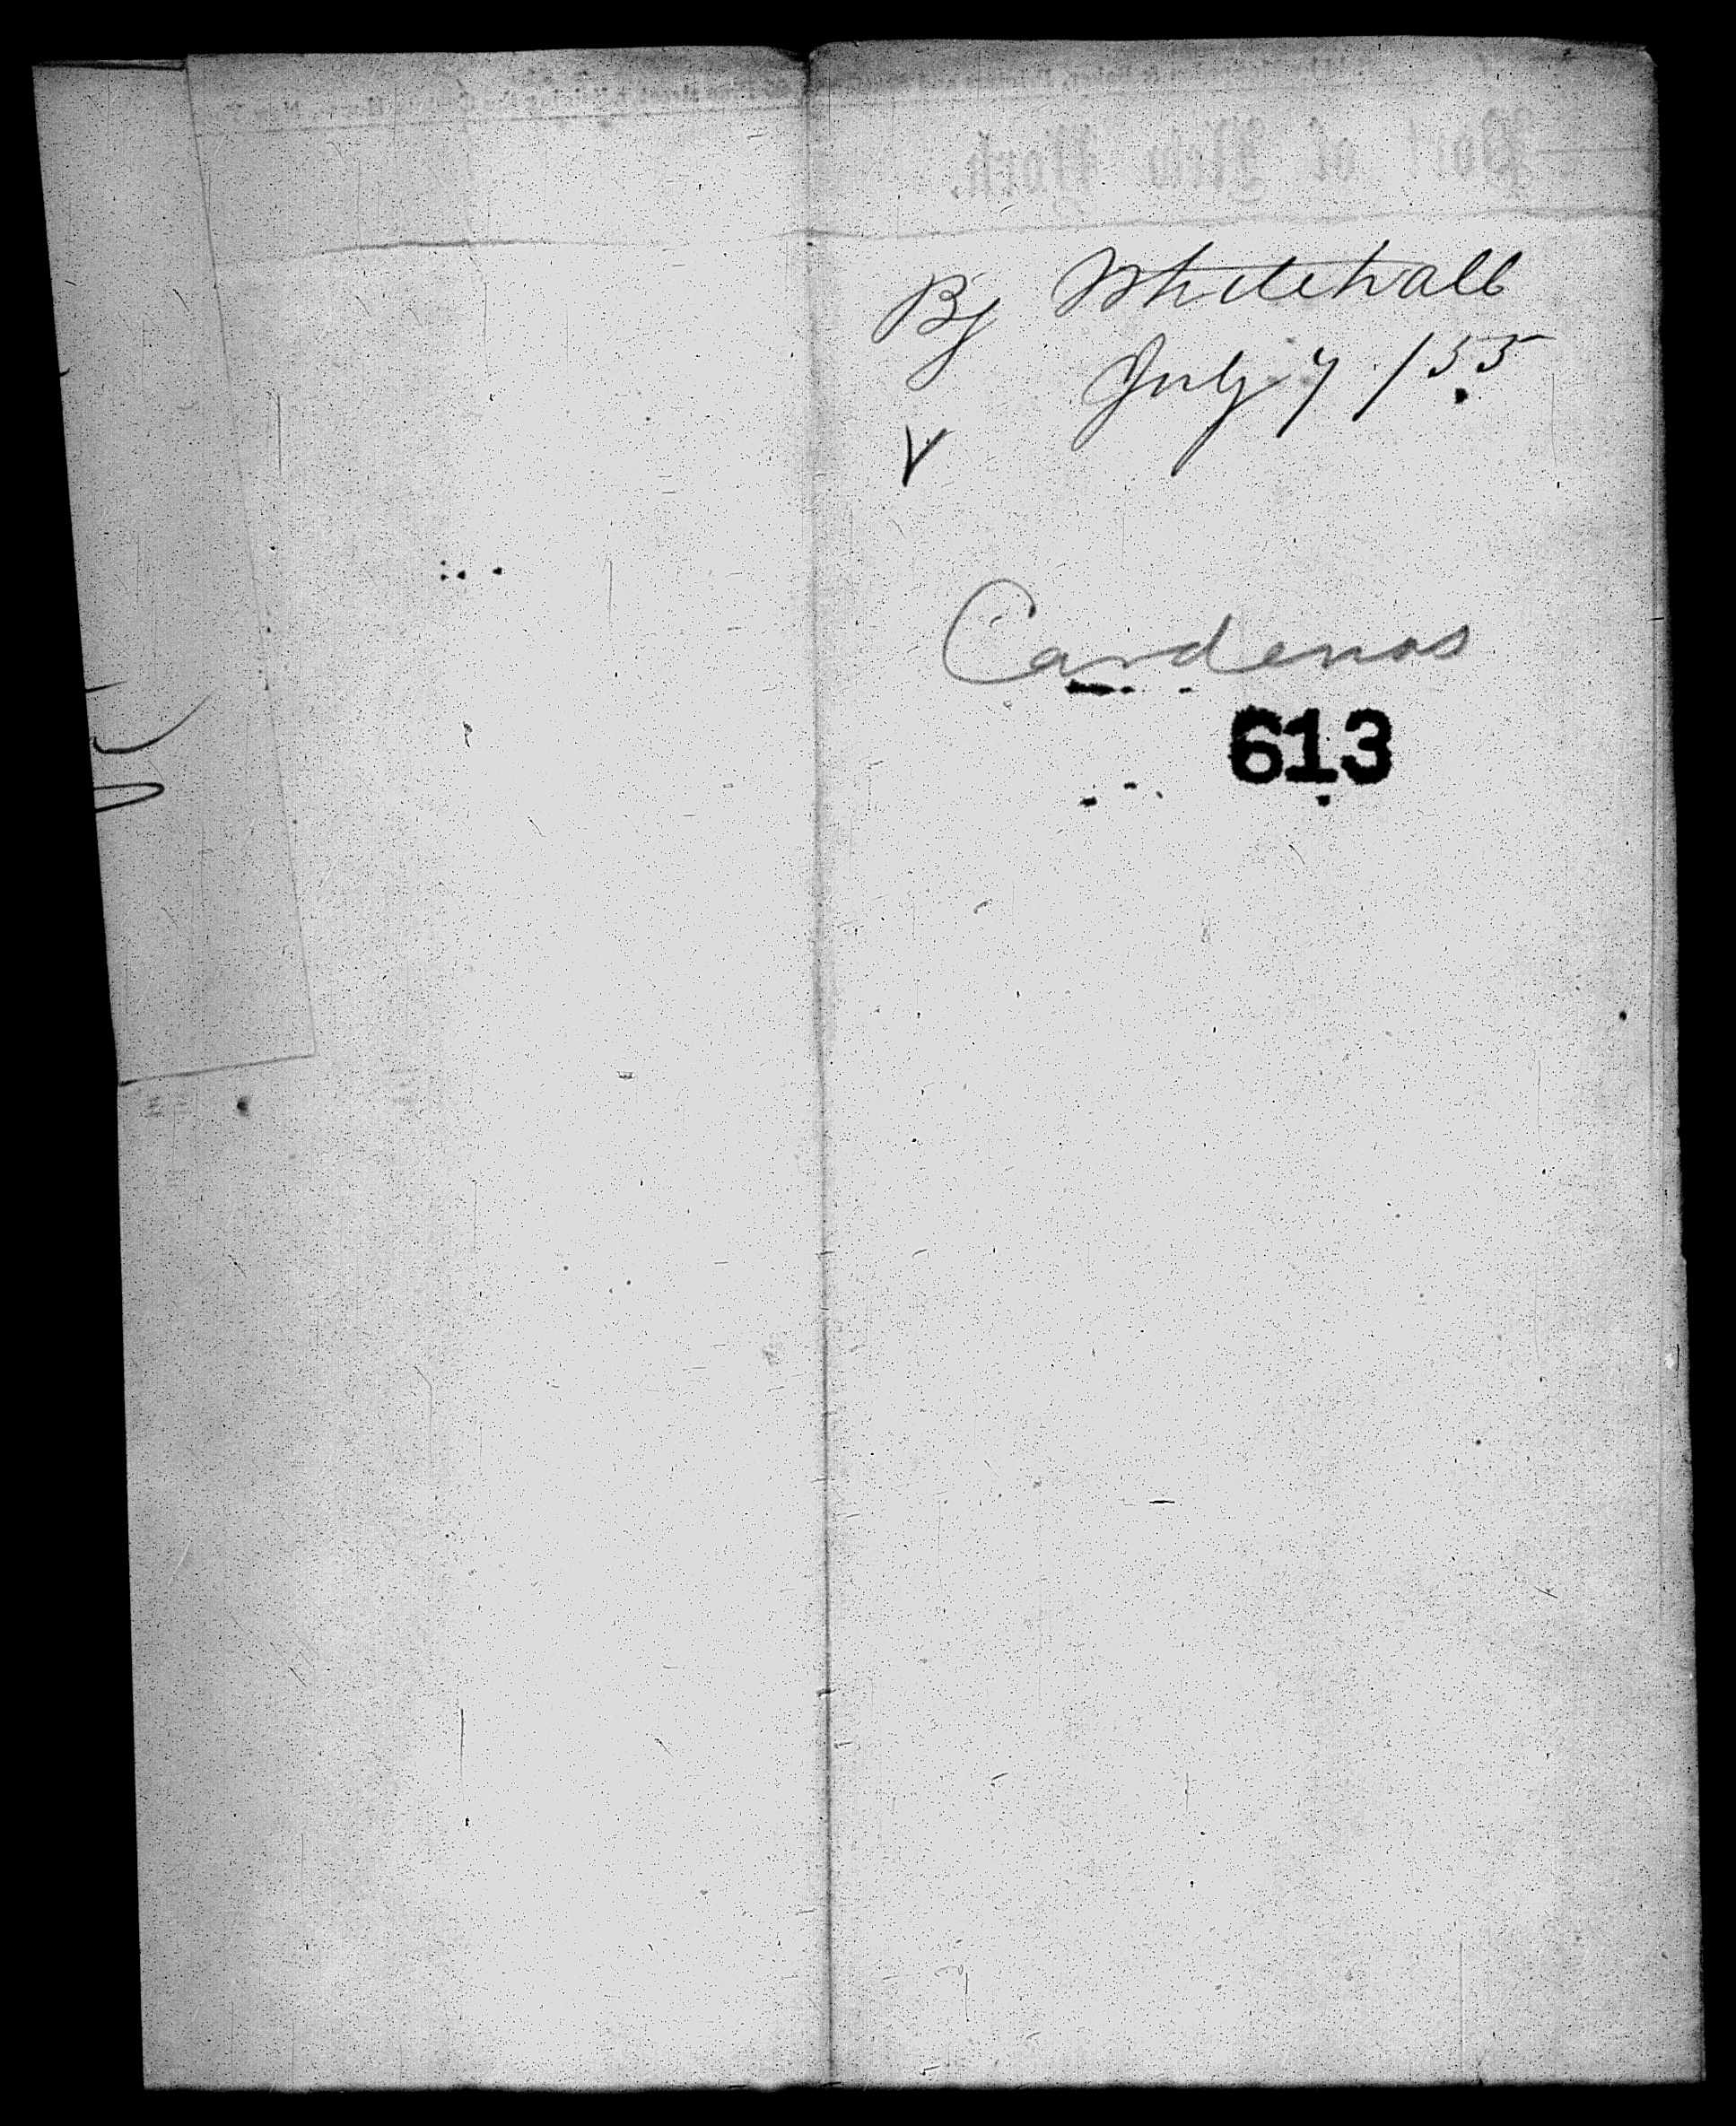 Port of New York.
Bg Whitehall
July 7 / 55
V
Cardenas
613